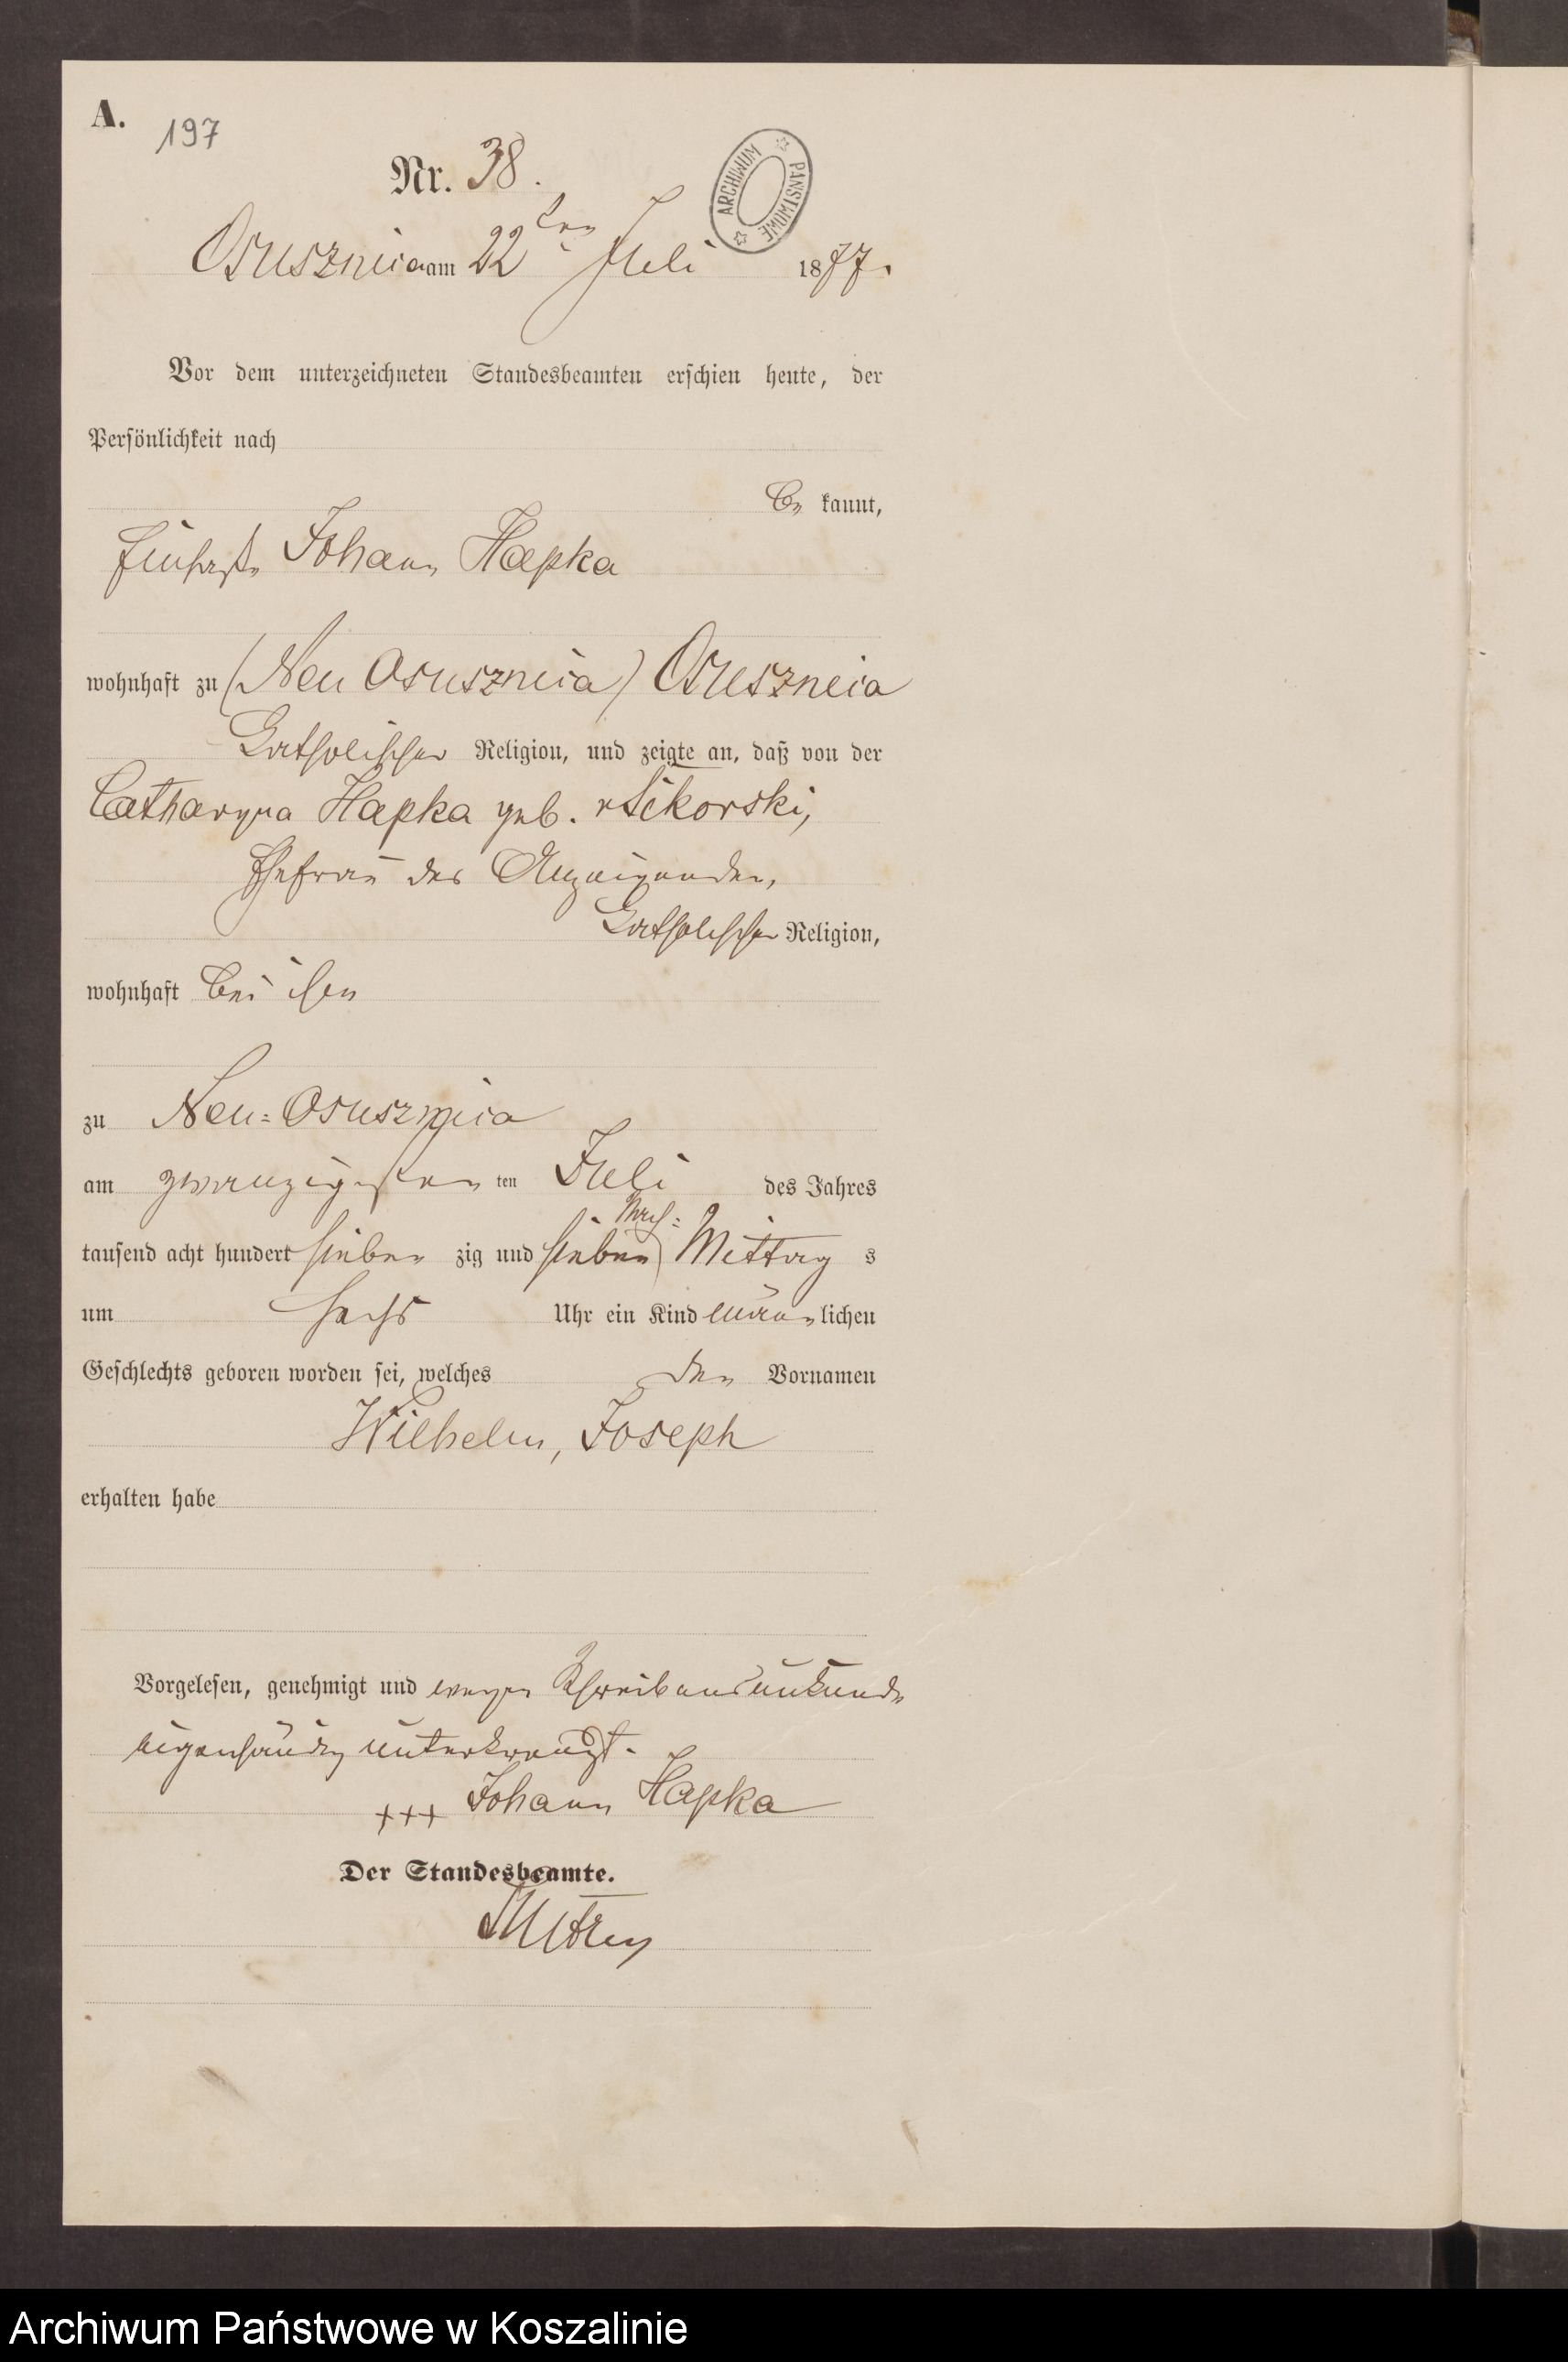 A.
197
Nr. 38.
ARCHIWUM PAŃSTWOWE
Osusznica am 22ten Juli 1877.
Vor dem unterzeichneten Standesbeamten erschien heute, der
Persönlichkeit nach
be kannt,
Johann Hapka
wohnhaft zu (Neu Osusznica) Osusznica
Catholischer Religion, und zeigte an, daß von der
Catharyna Hapka geb. v Sikorski,
Ehefrau des Anzeigenden,
Catholischer Religion,
wohnhaft bei ihm
zu Neu-Osusznica
am zwanzigsten ten Juli des Jahres
tausend acht hundert sieben zig und sieben Nach- Mittag s
um sechs Uhr ein Kind männ lichen
Geschlechts geboren worden sei, welches den Vornamen
Wilhelm, Joseph
erhalten habe
Vorgelesen, genehmigt und wegen Schreibensunkunde
eigenhändig unterkreuzt.
+++ Johann Hapka
Der Standesbeamte.
Archiwum Państwowe w Koszalinie